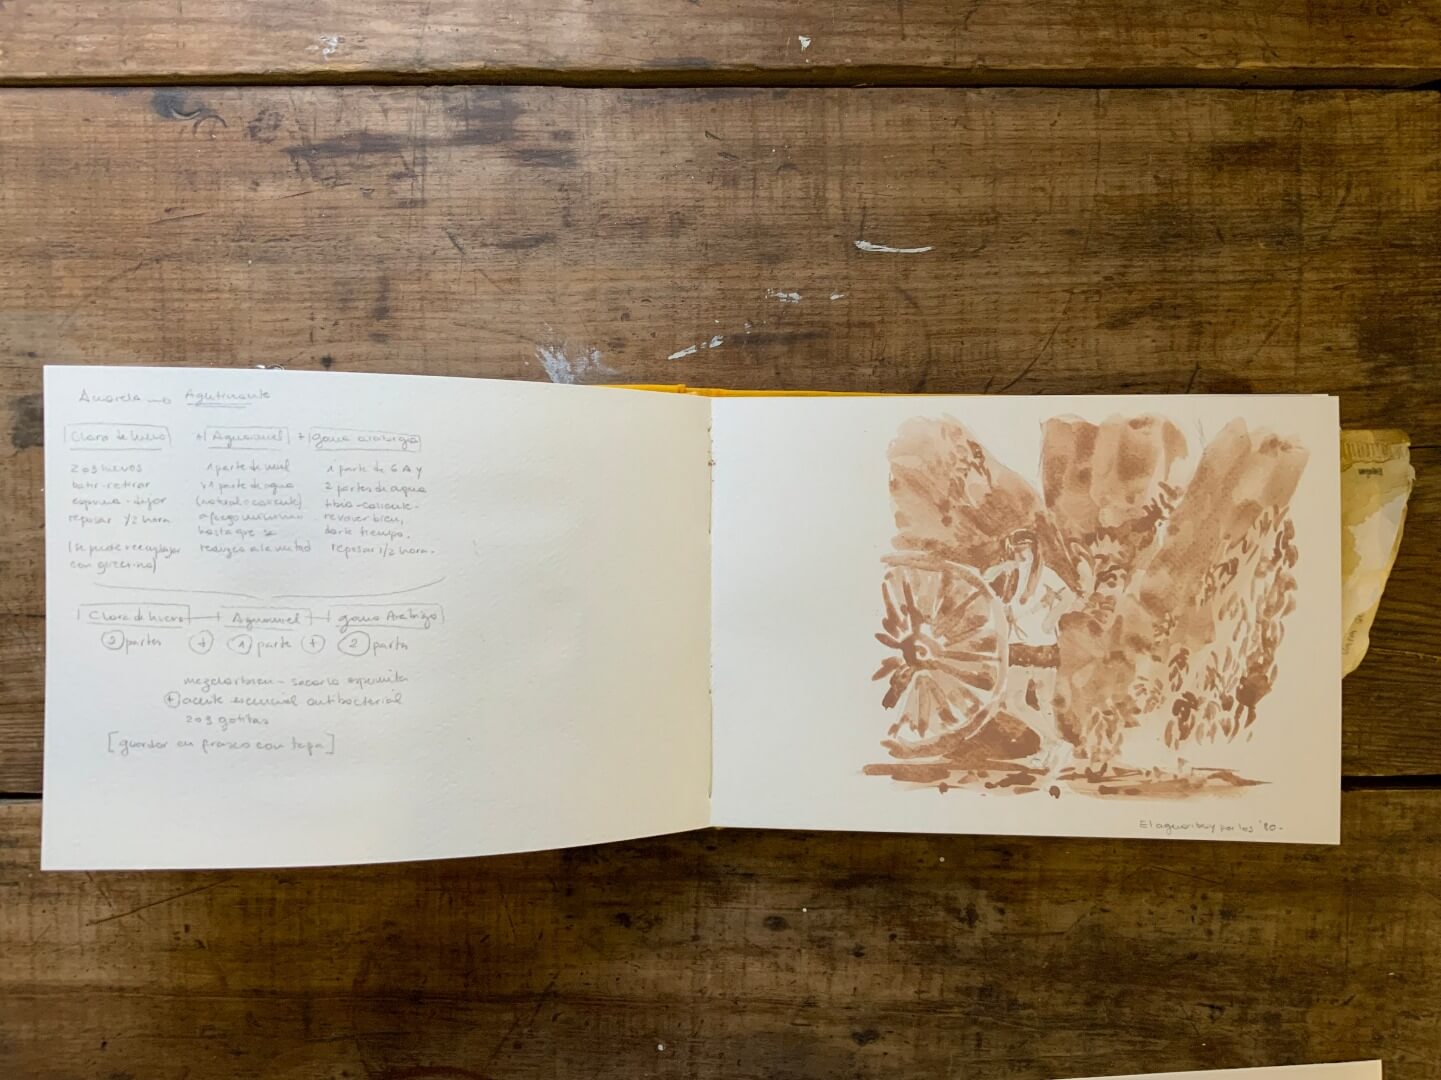 Acuarela → Aglutinante
Clara de huevo + Aguamiel + goma arábiga
2 o 3 huevos
batir - retirar
espuma - dejar
reposar 1/2 hora
(se puede reemplazar
con glicerina)
1 parte de miel
+1 parte de agua
(natural - caliente)
a fuego mínimo
hasta que se
reduzca a la mitad
1 parte de G A y
2 partes de agua
tibia - caliente -
revolver bien,
darle tiempo.
reposar 1/2 hora.
Clara de huevo + Aguamiel + goma Arábiga
2 partes + 1 parte + 2 partes
mezclar bien - sacarle espumita
+ aceite esencial antibacterial
2 o 3 gotitas
[guardar en frasco con tapa]
El aguaribay por los '80.